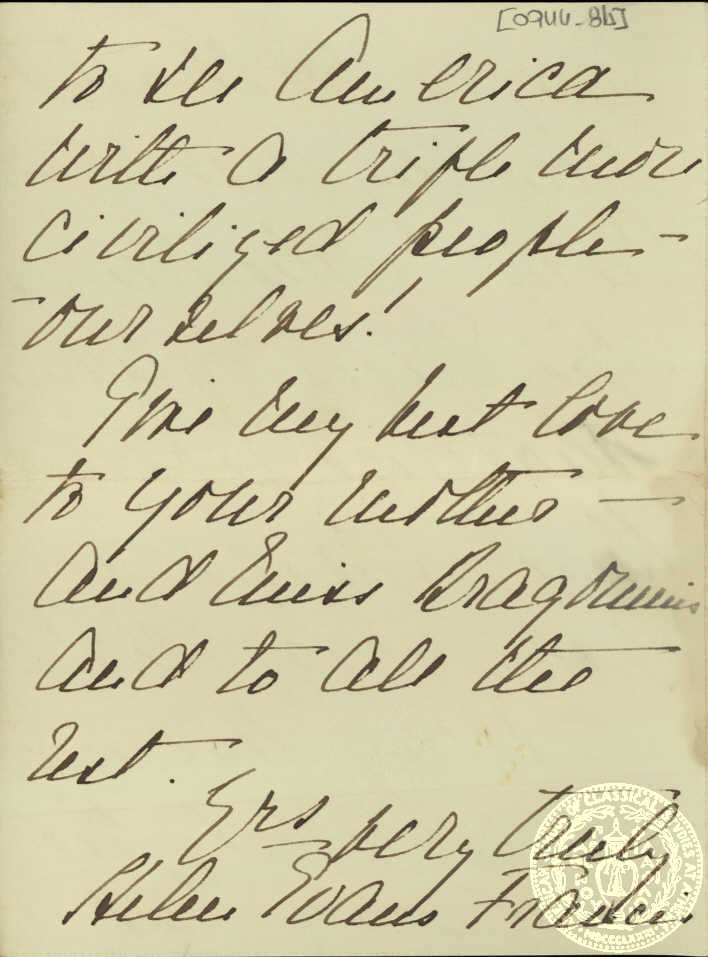 [0944-8b]
to see America
with a triple more
civilized people -
- ourselves!
Give my best love
to your mother -
and Miss
and to all the
rest.
Yrs very truly
Helen Evans Francis